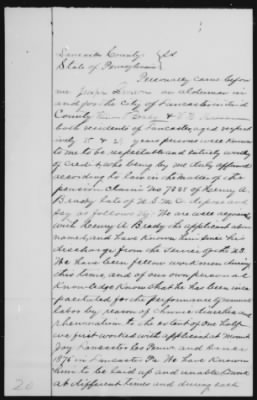 Lancaster County } SS
State of Pennsylvania }
Personally came before
me an Alderman in
and for the City of Lancaster in said
County &
both residents of Lancaster, aged respect
ively & years persons well known
to me to be respectable and entirely worthy
of credit, who being by me duly affirmed
according to law in the matter of the
pension claim No 7281 of Henry A.
Brady late of U.S.M.C. depose and
say as follows viz: We are well acquainted
with Henry A. Brady the applicant above
named, and have known him since his
discharge from the service of the U.S.
We have been fellow workmen during
this time, and of our own personal
Knowledge Know that he has been inca
pacitated for the performance of manual
labor by reason of Chronic diarrhea and
rheumatism to the extent of one half
we first worked with applicant at Mount
Joy Lancaster Co Penna and
1875 in Lancaster Pa. We have Known
him to be laid up and unable to work
at different times and during each
20